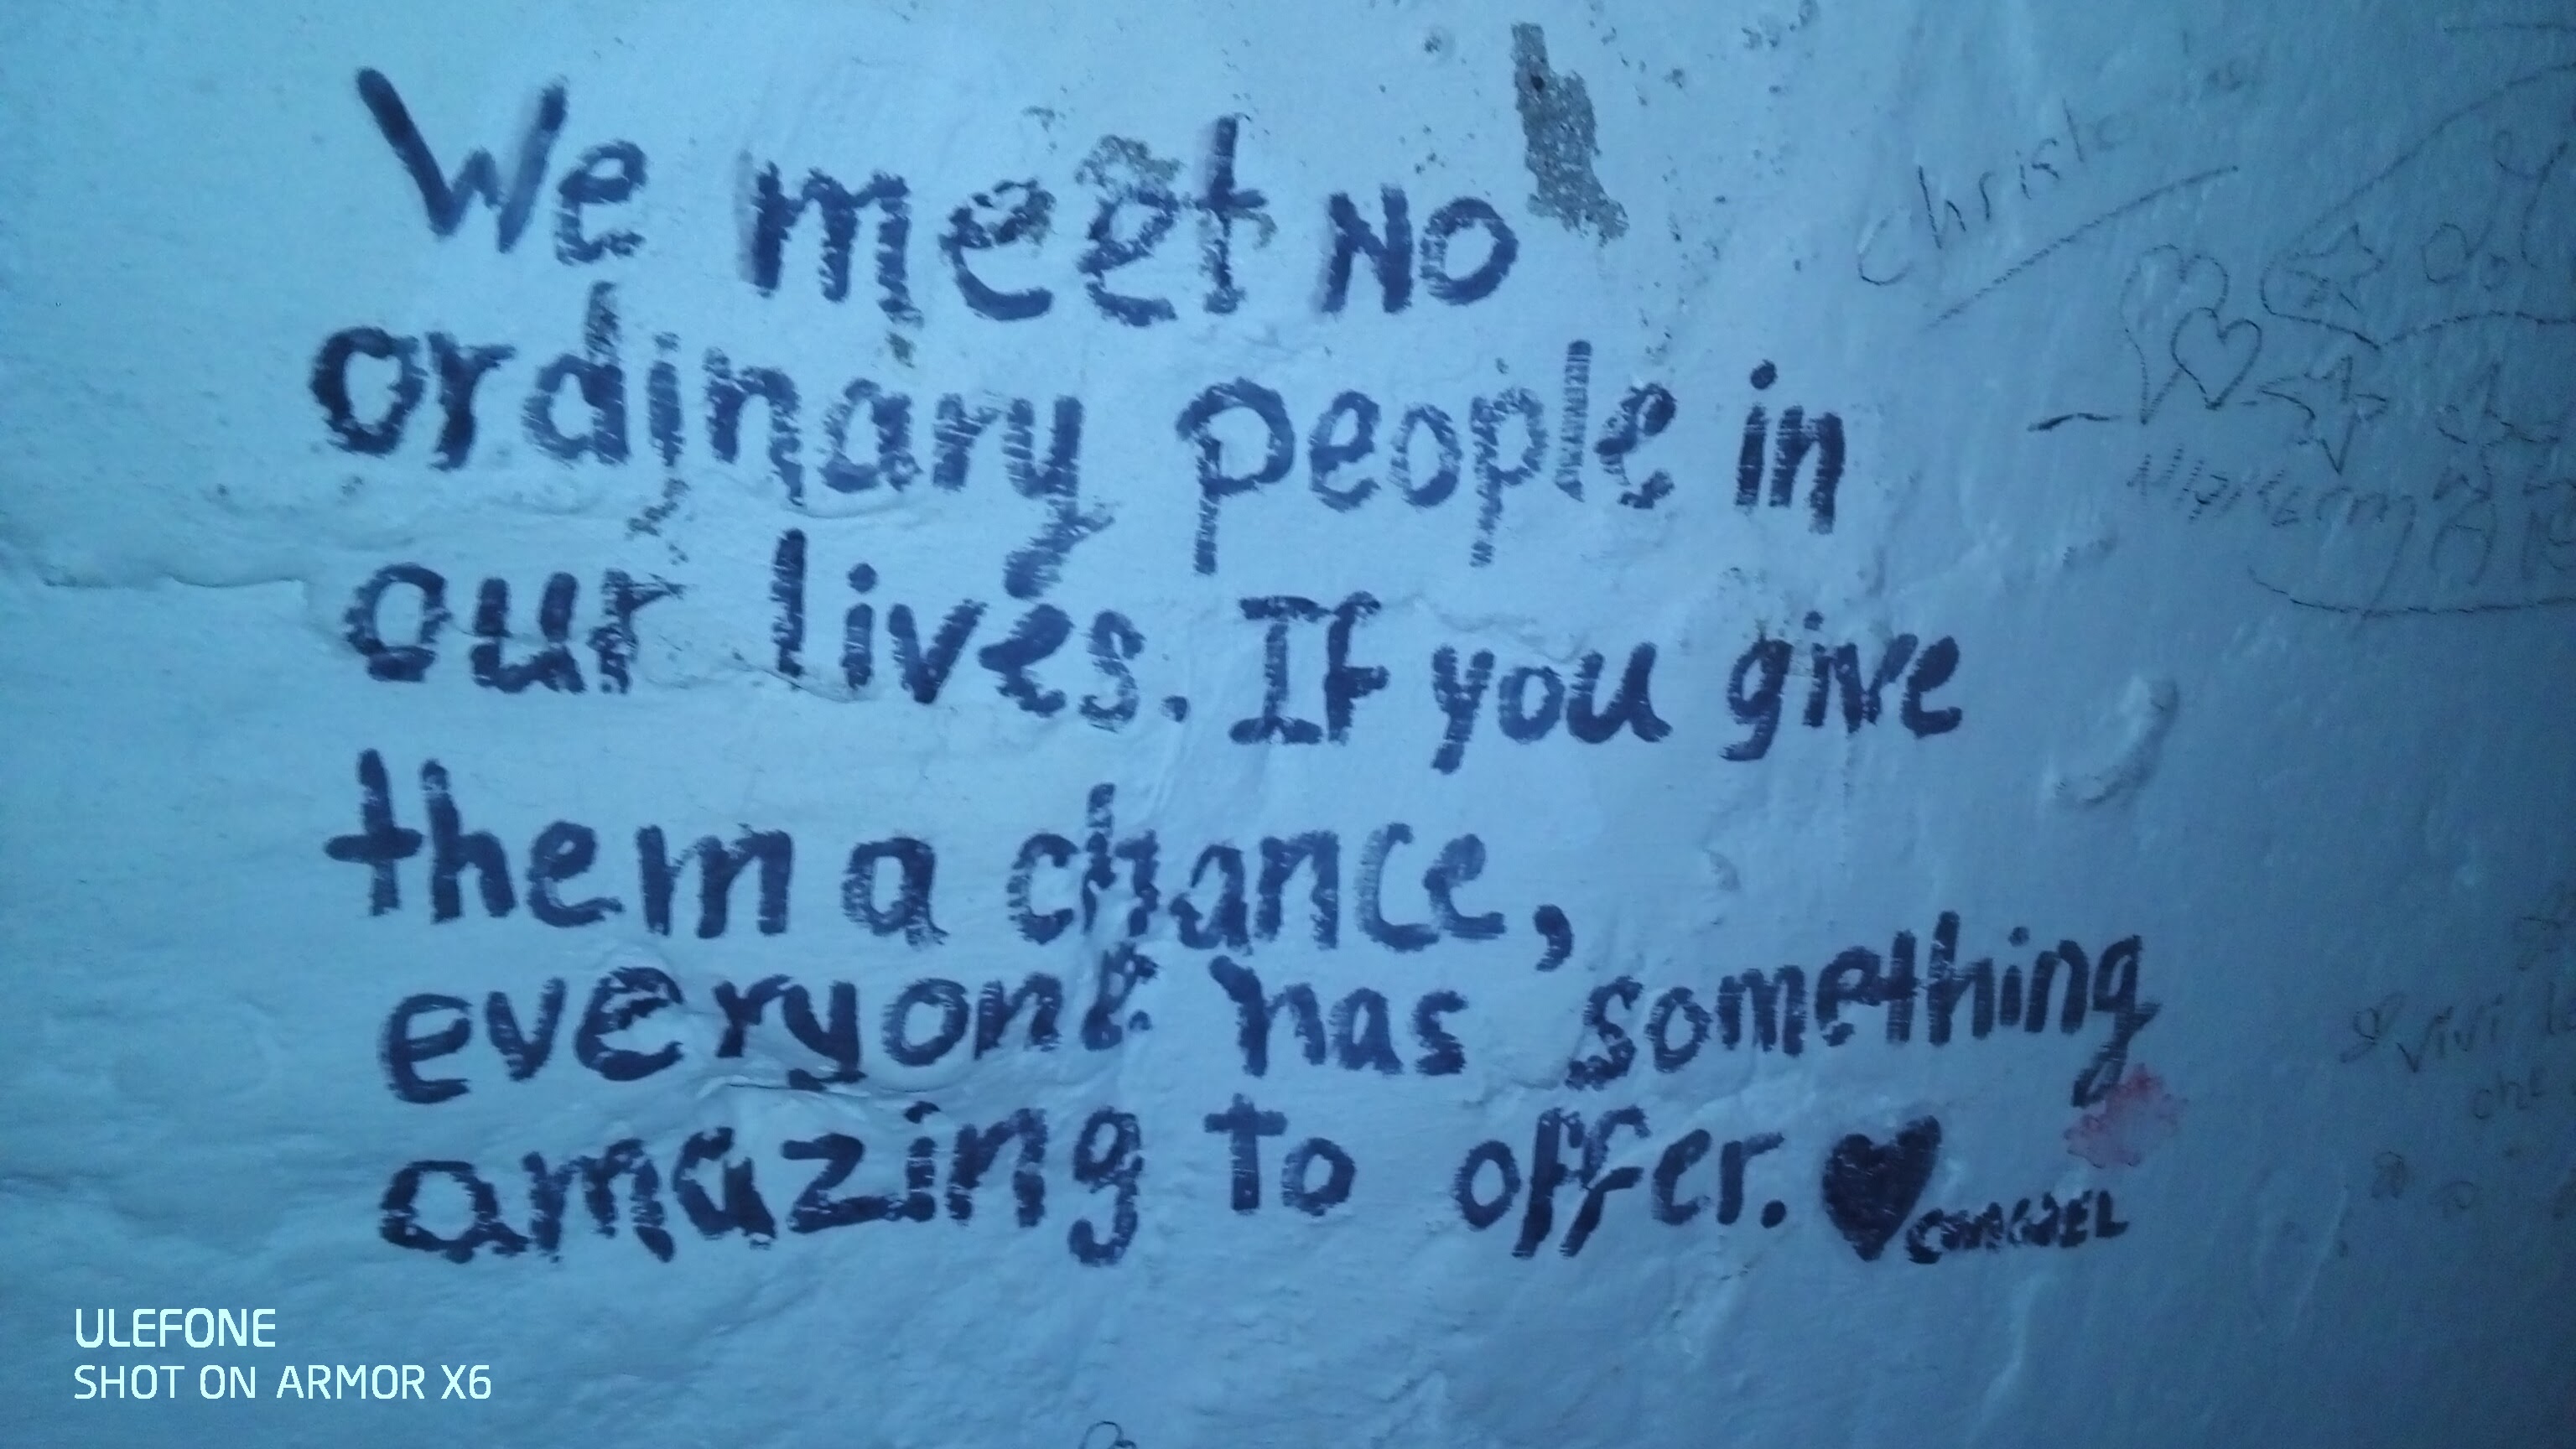 We meet NO
ordinary people in
our lives. If you give
them a chance,
everyone has something
amazing to offer.
Christ
vivi
ULEFONE
SHOT ON ARMOR X6